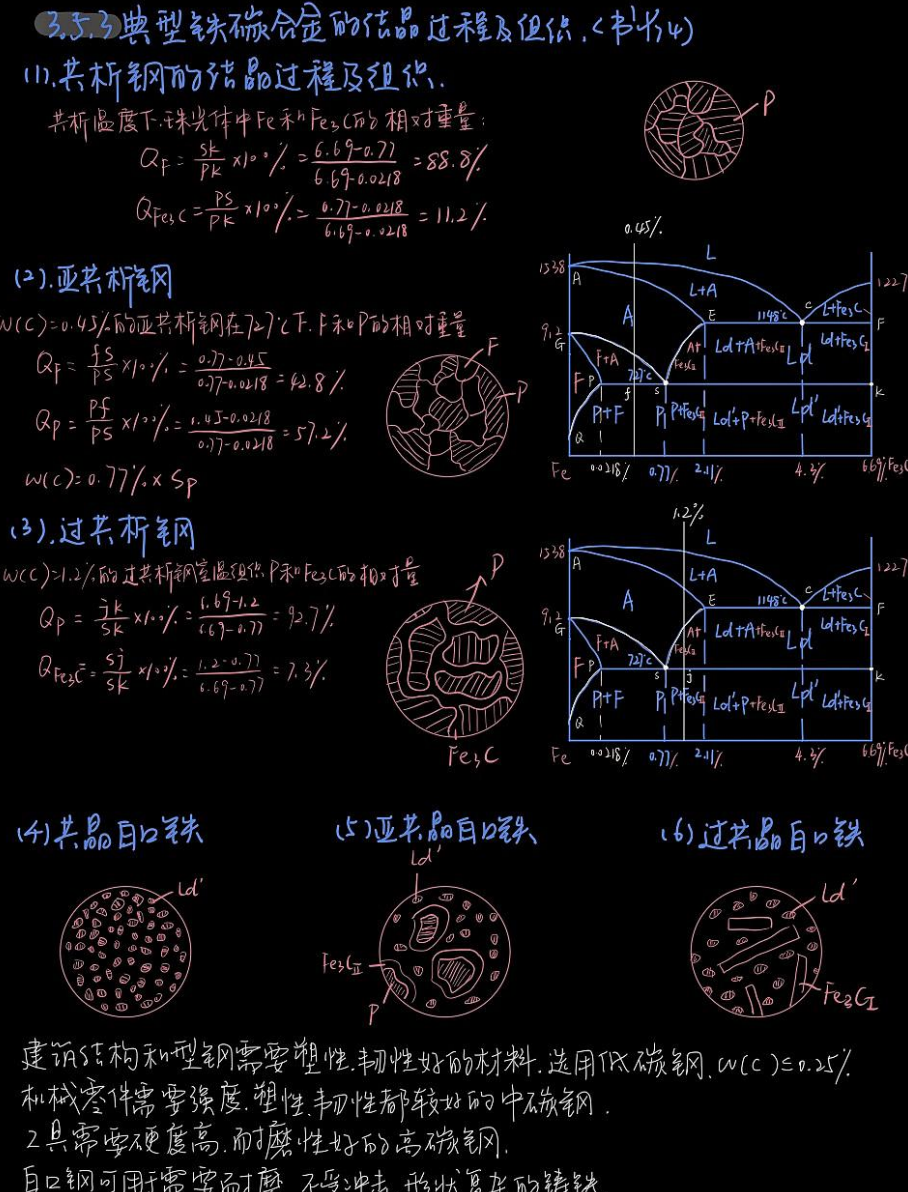 3.5.3典型铁碳合金的结晶过程及组织.(书P54)
(1).共析钢的结晶过程及组织.
共析温度下.珠光体中Fe和Fe3C的相对重量:
QF = SK/PK ×100% = 6.69-0.77/6.69-0.0218 = 88.8%
QFe3C = PS/PK ×100% = 0.77-0.0218/6.69-0.0218 = 11.2%
P
(2).亚共析钢
W(C)=0.45%的亚共析钢在727℃下.F和P的相对重量
QF = fS/PS ×100% = 0.77-0.45/0.77-0.0218 = 42.8%
QP = Pf/PS ×100% = 0.45-0.0218/0.77-0.0218 = 57.2%
W(C)=0.77% × SP
F
P
0.45%
1538
A
L
L+A
1227
A
E
1148℃
C
L+Fe3C
F
912
G
F+A
727℃
A+
Fe3CⅡ
Ld+A+Fe3CⅡ
Ld
Ld+Fe3CⅠ
F
P
f
S
K
P+F
P
P+Fe3CⅡ
Ld'+P+Fe3CⅡ
Ld'
Ld'+Fe3CⅠ
Q
Fe
0.0218%
0.77%
2.11%
4.3%
6.69%Fe3C
(3).过共析钢
W(C)=1.2%的过共析钢室温组织P和Fe3C的相对量
QP = jK/SK ×100% = 6.69-1.2/6.69-0.77 = 92.7%
QFe3C = Sj/SK ×100% = 1.2-0.77/6.69-0.77 = 7.3%
P
Fe3C
1.2%
1538
A
L
L+A
1227
A
E
1148℃
C
L+Fe3C
F
912
G
F+A
727℃
A+
Fe3CⅡ
Ld+A+Fe3CⅡ
Ld
Ld+Fe3CⅠ
F
P
S
j
K
P+F
P
P+Fe3CⅡ
Ld'+P+Fe3CⅡ
Ld'
Ld'+Fe3CⅠ
Q
Fe
0.0218%
0.77%
2.11%
4.3%
6.69%Fe3C
(4)共晶白口铁
(5)亚共晶白口铁
(6)过共晶白口铁
Ld'
Ld'
Fe3CⅡ
P
Ld'
Fe3CⅠ
建筑结构和型钢需要塑性.韧性好的材料.选用低碳钢.W(C)≤0.25%
机械零件需要强度.塑性.韧性都较好的中碳钢.
工具需要硬度高.耐磨性好的高碳钢.
白口钢可用于需要耐磨.不受冲击.形状复杂的铸铁